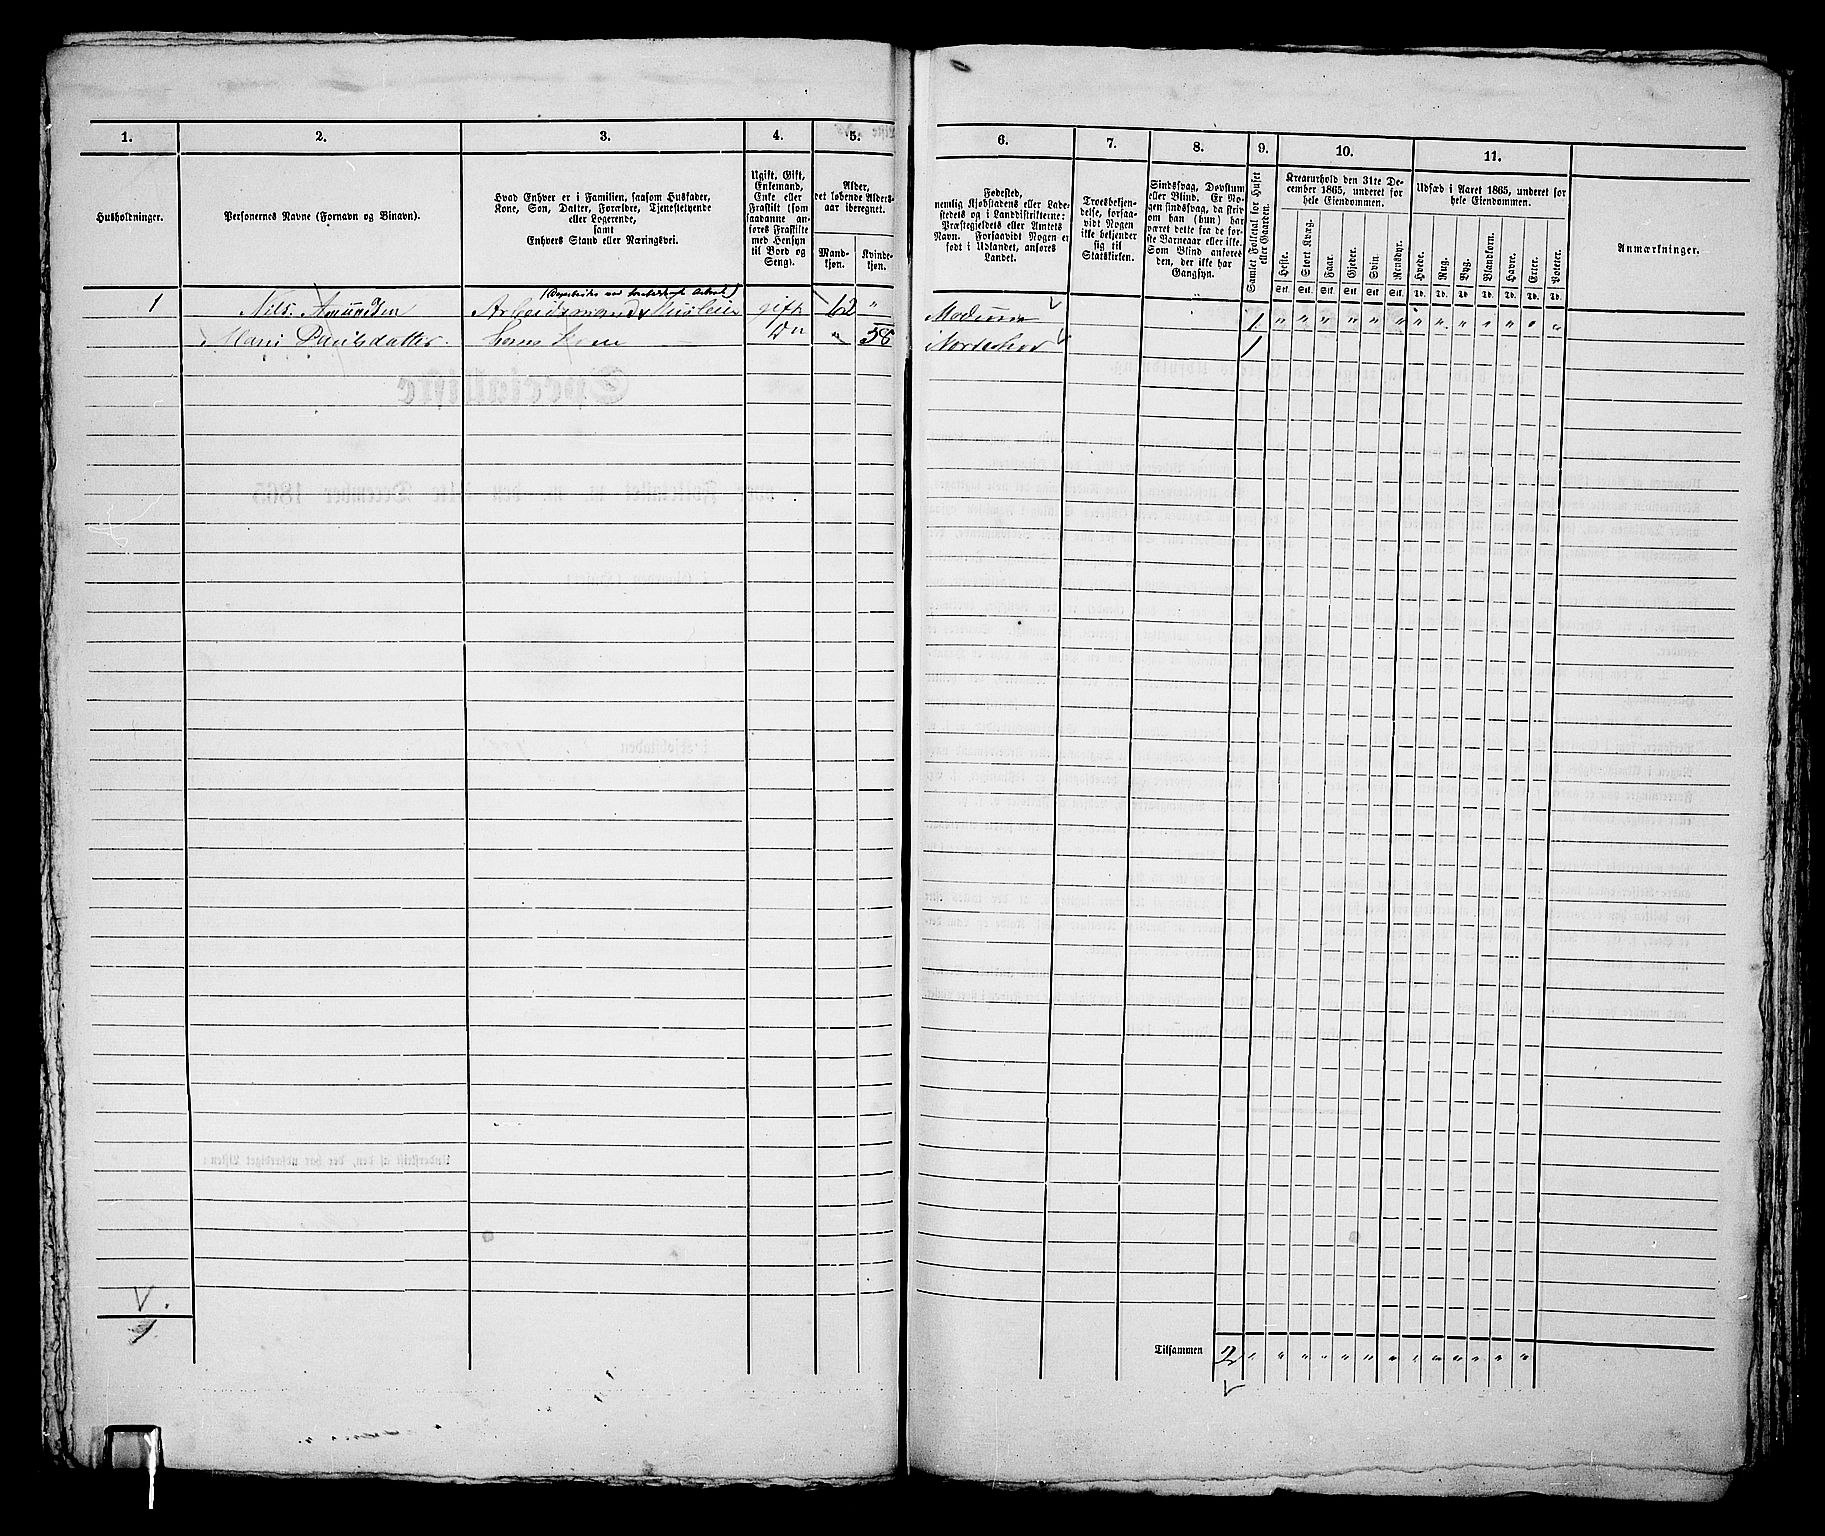 1.
2.
3.
4.
5.
6.
7.
8.
9.
10.
11.
Husholdninger.
Personernes Navne (Fornavn og Binavn).
Hvad Enhver er i Familien, saasom Husfader,
Kone, Søn, Datter, Forældre, Tjenestetyende
eller Logerende,
samt
Enhvers Stand eller Næringsvei.
Ugift, Gift,
Enkemand,
Enke eller
Fraskilt (som
saadanne an-
føres Fraskilte
med Hensyn
til Bord og
Seng).
Alder,
det løbende Alders-
aar iberegnet.
Mand-
kjøn.
Kvinde-
kjøn.
Fødested,
nemlig Kjøbstadens eller Lade-
stedets og i Landdistrikterne:
Præstegjeldets eller Amtets
Navn. Forsaavidt Nogen er
født i Udlandet, anføres
Landet.
Troesbekjen-
delse, forsaa-
vidt Nogen
ikke bekjender
sig til
Statskirken.
Sindssvag, Døvstum
eller Blind. Er No-
gen sindssvag, da skriv
om han (hun) har
været dette fra de før-
ste Barneaar eller ikke.
Som Blind anføres
den, der ikke har
Gangsyn.
Samlet Folketal for Huset
eller Gaarden.
Kreaturhold den 31te De-
cember 1865, underet for
hele Eiendommen.
Heste.
Stort Kvæg.
Faar.
Gjeder.
Svin.
Rensdyr.
Stk. Stk. Stk. Stk. Stk. Stk.
Udsæd i Aaret 1865, underet for
hele Eiendommen.
Hvede.
Rug.
Byg.
Blandkorn.
Havre.
Erter.
Poteter.
Td. Td. Td. Td. Td. Td. Td.
Anmærkninger.
1 Nils Amundsen Arbeidsmand gift 62 " Modum 1 " " " " " " " " " " " " "
Paulsdatter Hans Kone Do " 58 1
Tilsammen 2 " " " " " " " " " " " " "